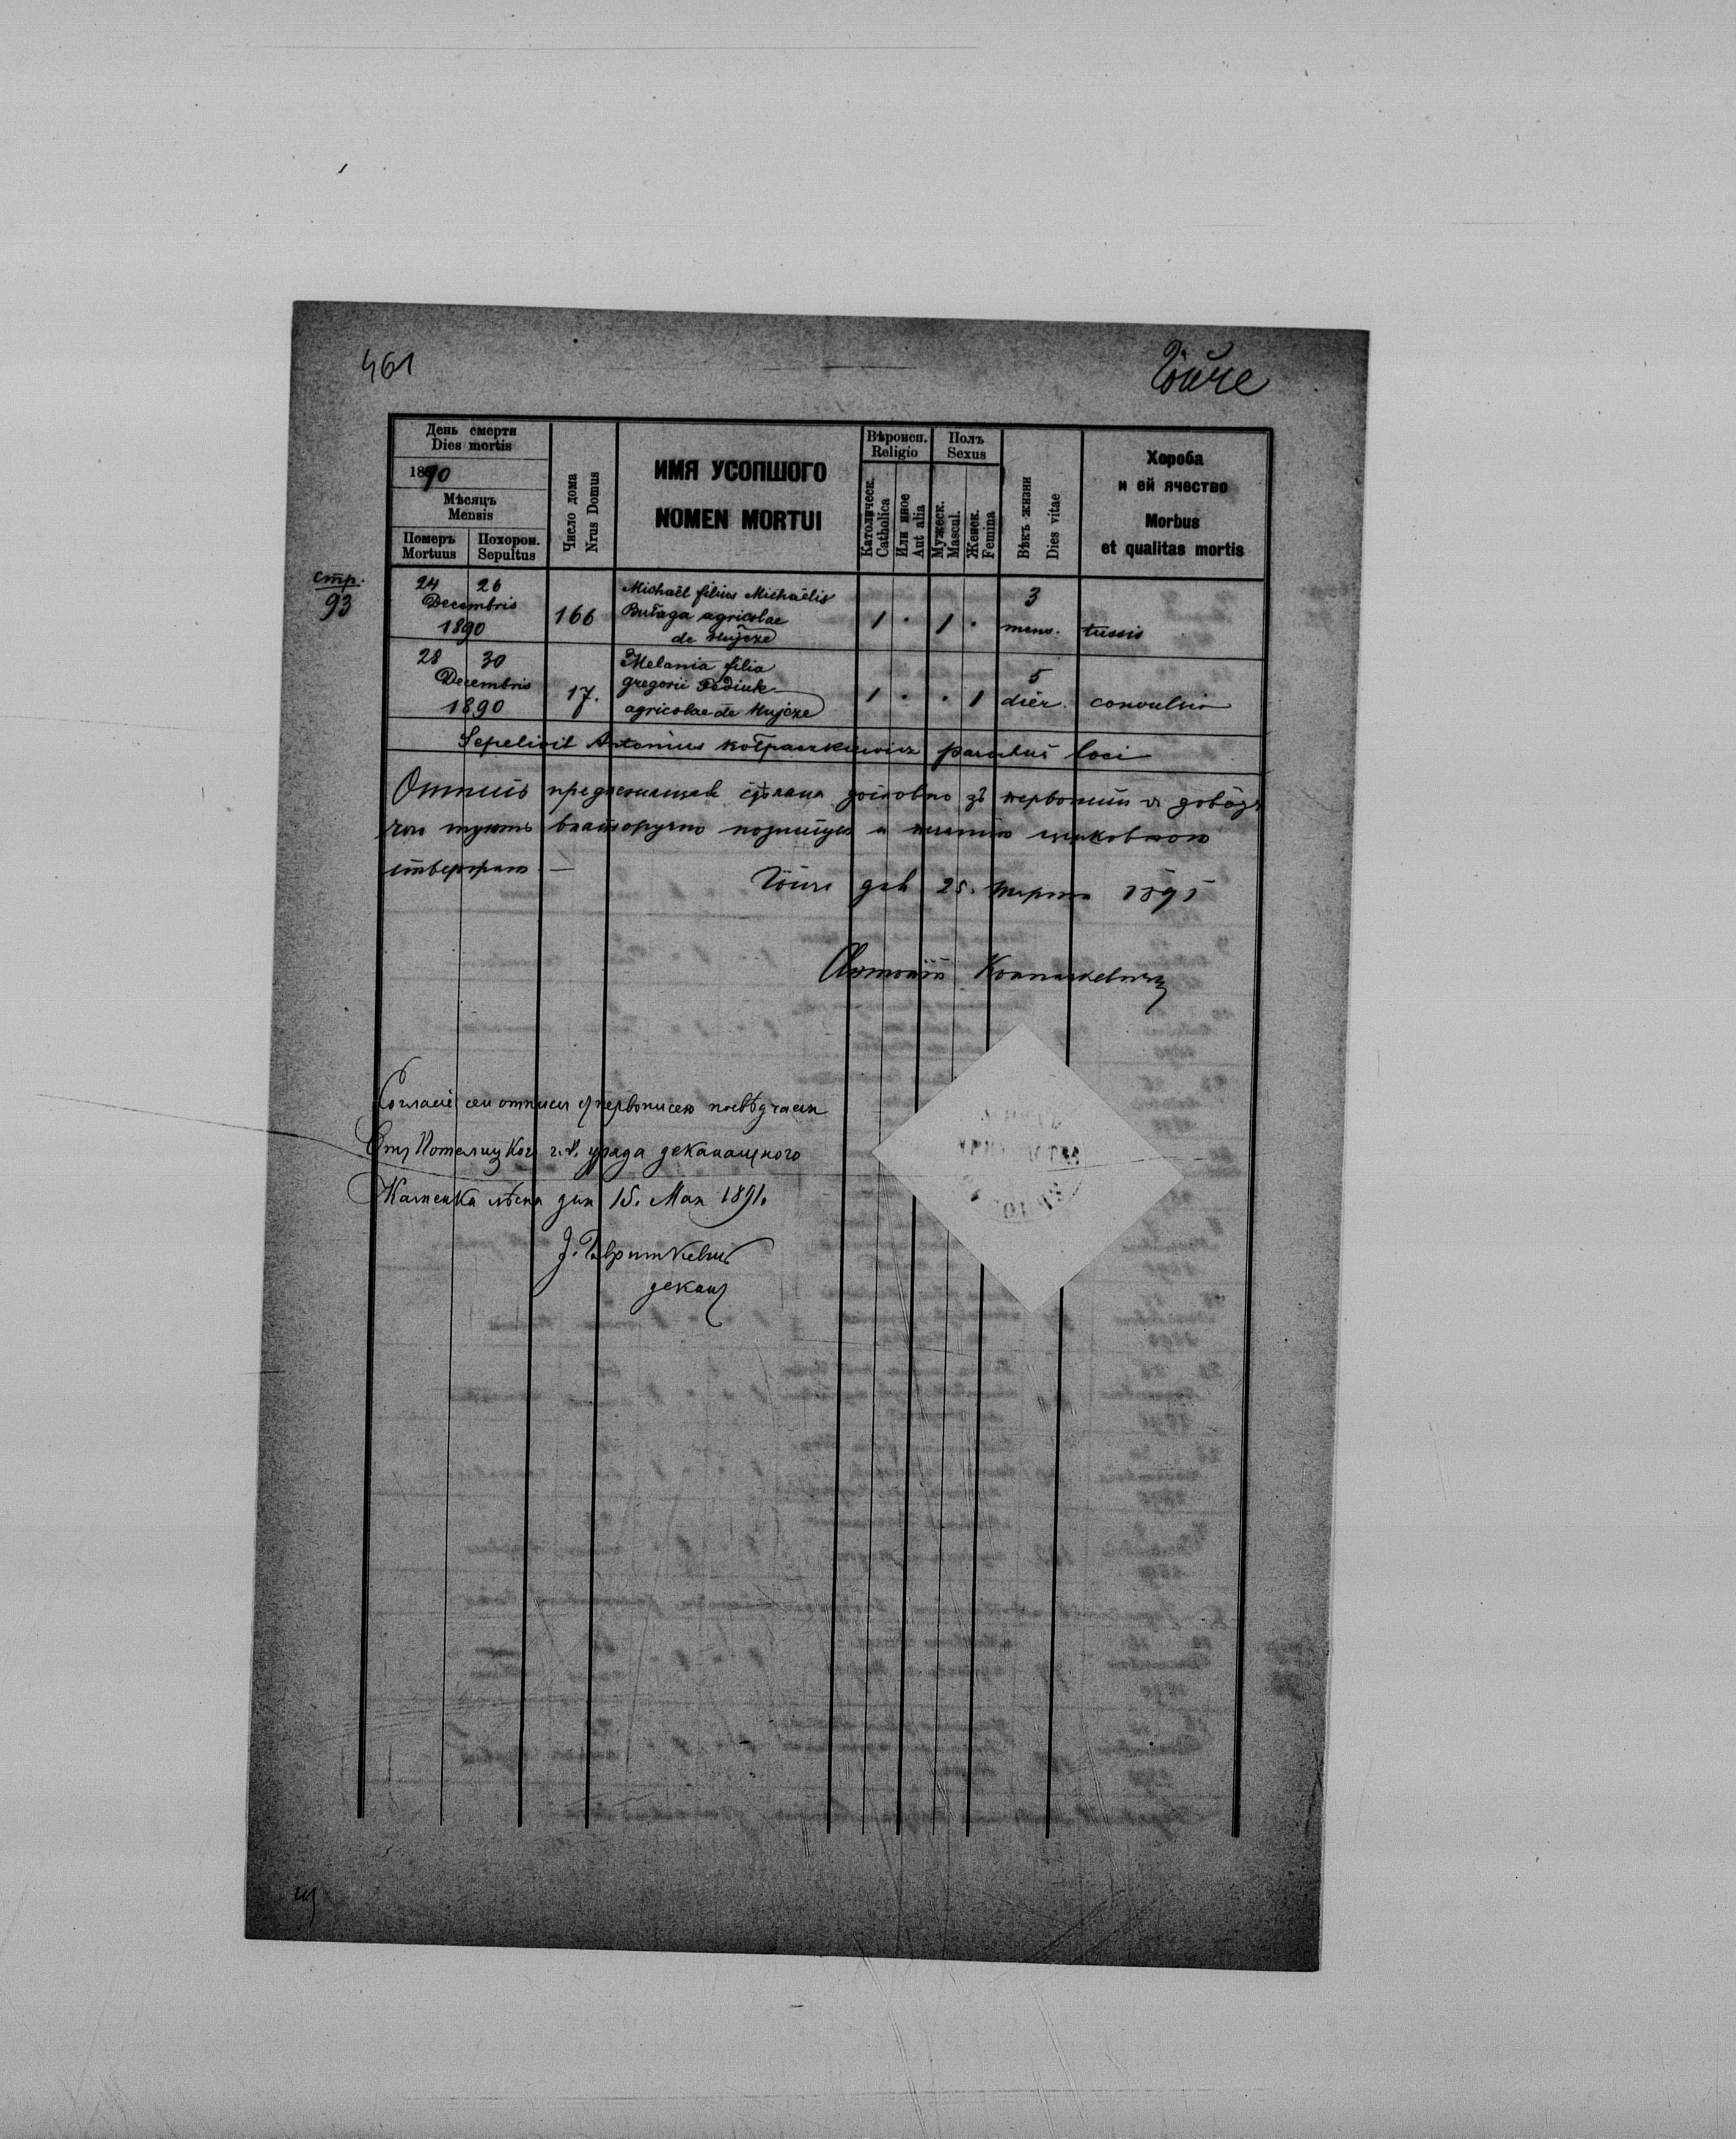 461
Гойче
День смерти
Dies mortis
1890
Мѣсяцъ
Mensis
Померъ
Mortuus
Похорон.
Sepultus
Число дома
Nrus Domus
ИМЯ УСОПШОГО
NOMEN MORTUI
Вѣроисп.
Religio
Католическ.
Catholica
Или иное
Aut alia
Полъ
Sexus
Мужеск.
Mascul.
Женск.
Femina
Вѣкъ жизни
Dies vitae
Хороба
и ей ячество
Morbus
et qualitas mortis
стр.
93
24 26
Decembris
1890
166
Michaël filius Michaëlis
Bułaga agricolae
de Hujcze
1 · 1 ·
3
mens.
tussis
28 30
Decembris
1890
17.
Melania filia
gregorii Fediuk
agricolae de Hujcze
1 · · 1
5
dier.
convulsio
Sepelivit Antonius Kołpaczkiewicz parochus loci
Отписъ предлежащая дословно зъ первописи
рукою
стверджаю —
Гойче дня 25. марта 1891
Антоній Колпачкевичъ
Согласіе сеи отписи съ первописею посвѣдчаеся
Отъ Потелицкого г. к. уряда деканального
Каменка лѣсна дня 15. Мая 1891.
деканъ